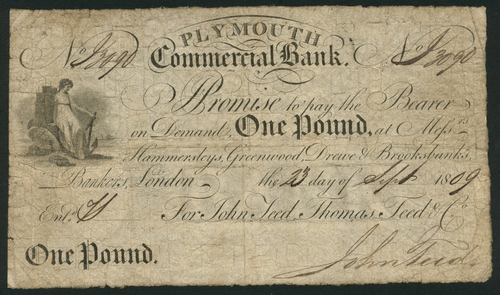 PLYMOUTH
No J3090 No J3090
Commercial Bank.
I Promise to pay the Bearer
on Demand, One Pound, at Messrs.
Hammersleys, Greenwood, Drewe & Brooksbanks,
Bankers, London the 23 day of Sept 1809
Entd. For John Teed, Thomas Teed & Co.
One Pound. John Teed